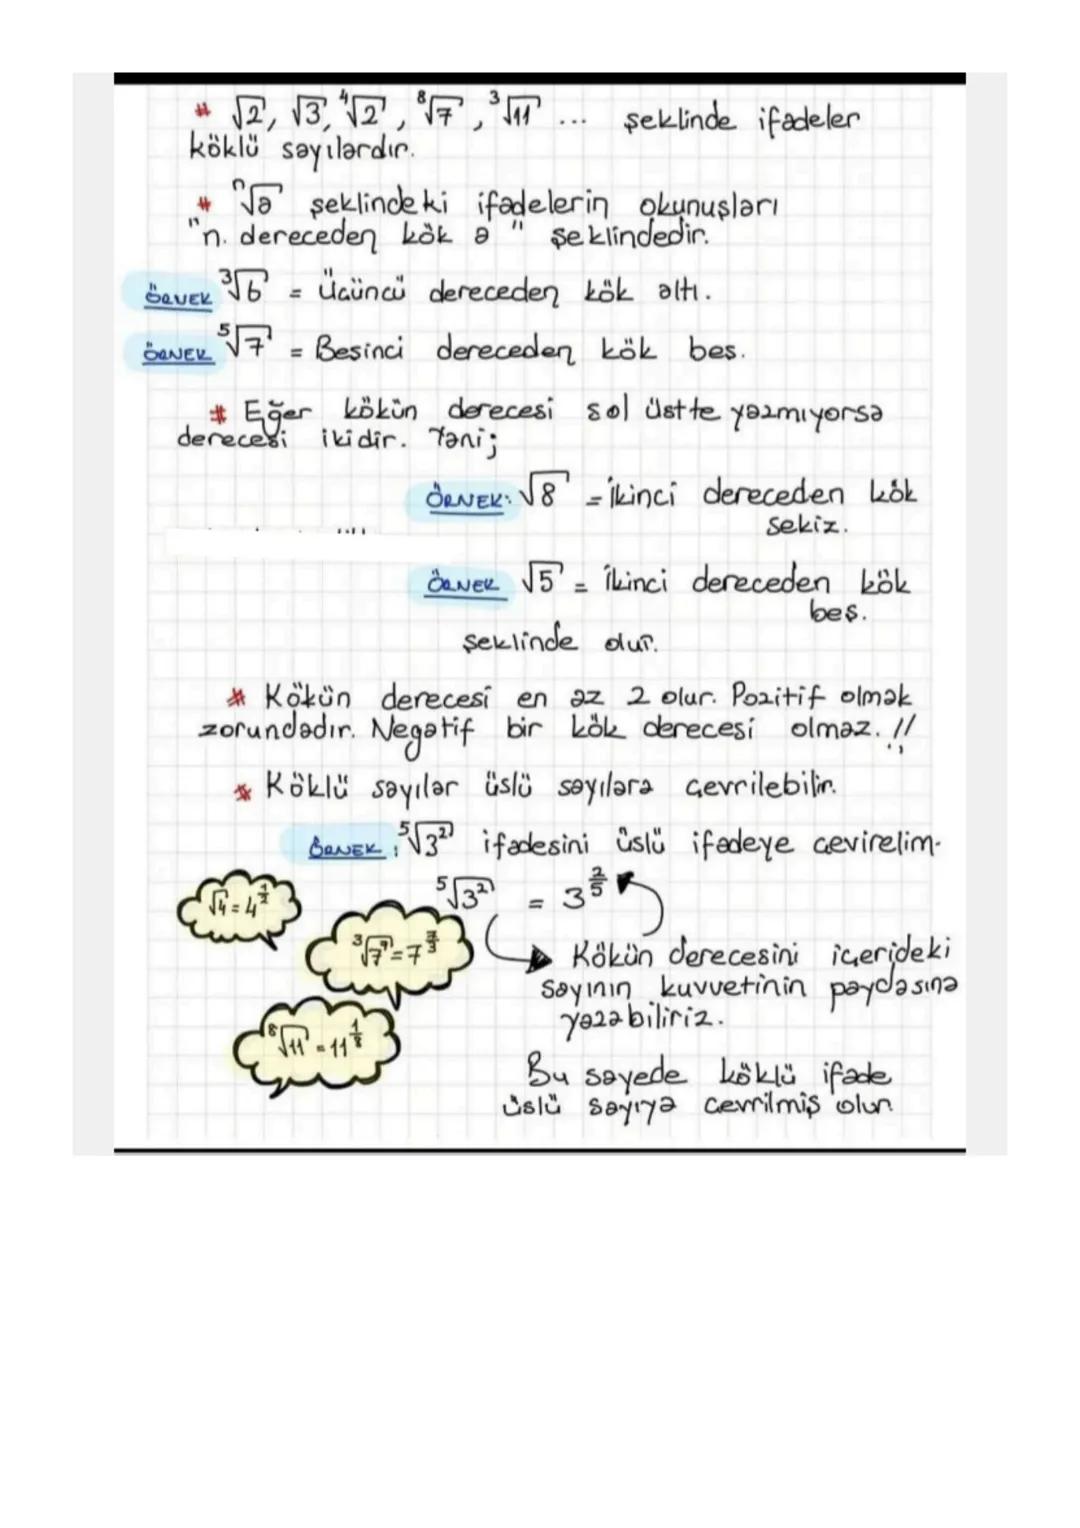 # √2, √3, ⁴√2, ⁸√7, ³√11 ... şeklinde ifadeler
köklü sayılardır.
# ⁿ√a şeklindeki ifadelerin okunuşları
"n. dereceden kök a" şeklindedir.
ÖRNEK ³√6 = Üçüncü dereceden kök altı.
ÖRNEK ⁵√7 = Besinci dereceden kök bes.
# Eğer kökün derecesi sol üstte yazmıyorsa
derecesi ikidir. Yani;
ÖRNEK: √8 = İkinci dereceden kök
sekiz.
ÖRNEK √5 = İkinci dereceden kök
beş.
şeklinde olur.
# Kökün derecesi en az 2 olur. Pozitif olmak
zorundadır. Negatif bir kök derecesi olmaz. !!
# Köklü sayılar üslü sayılara çevrilebilir.
ÖRNEK: ⁵√3² ifadesini üslü ifadeye çevirelim.
√4 = 4^(1/2)
⁵√3² = 3^(2/5)
Kökün derecesini içerideki
sayının kuvvetinin paydasına
yazabiliriz.
⁸√11 = 11^(1/8)
Bu sayede köklü ifade
üslü sayıya çevrilmiş olur.